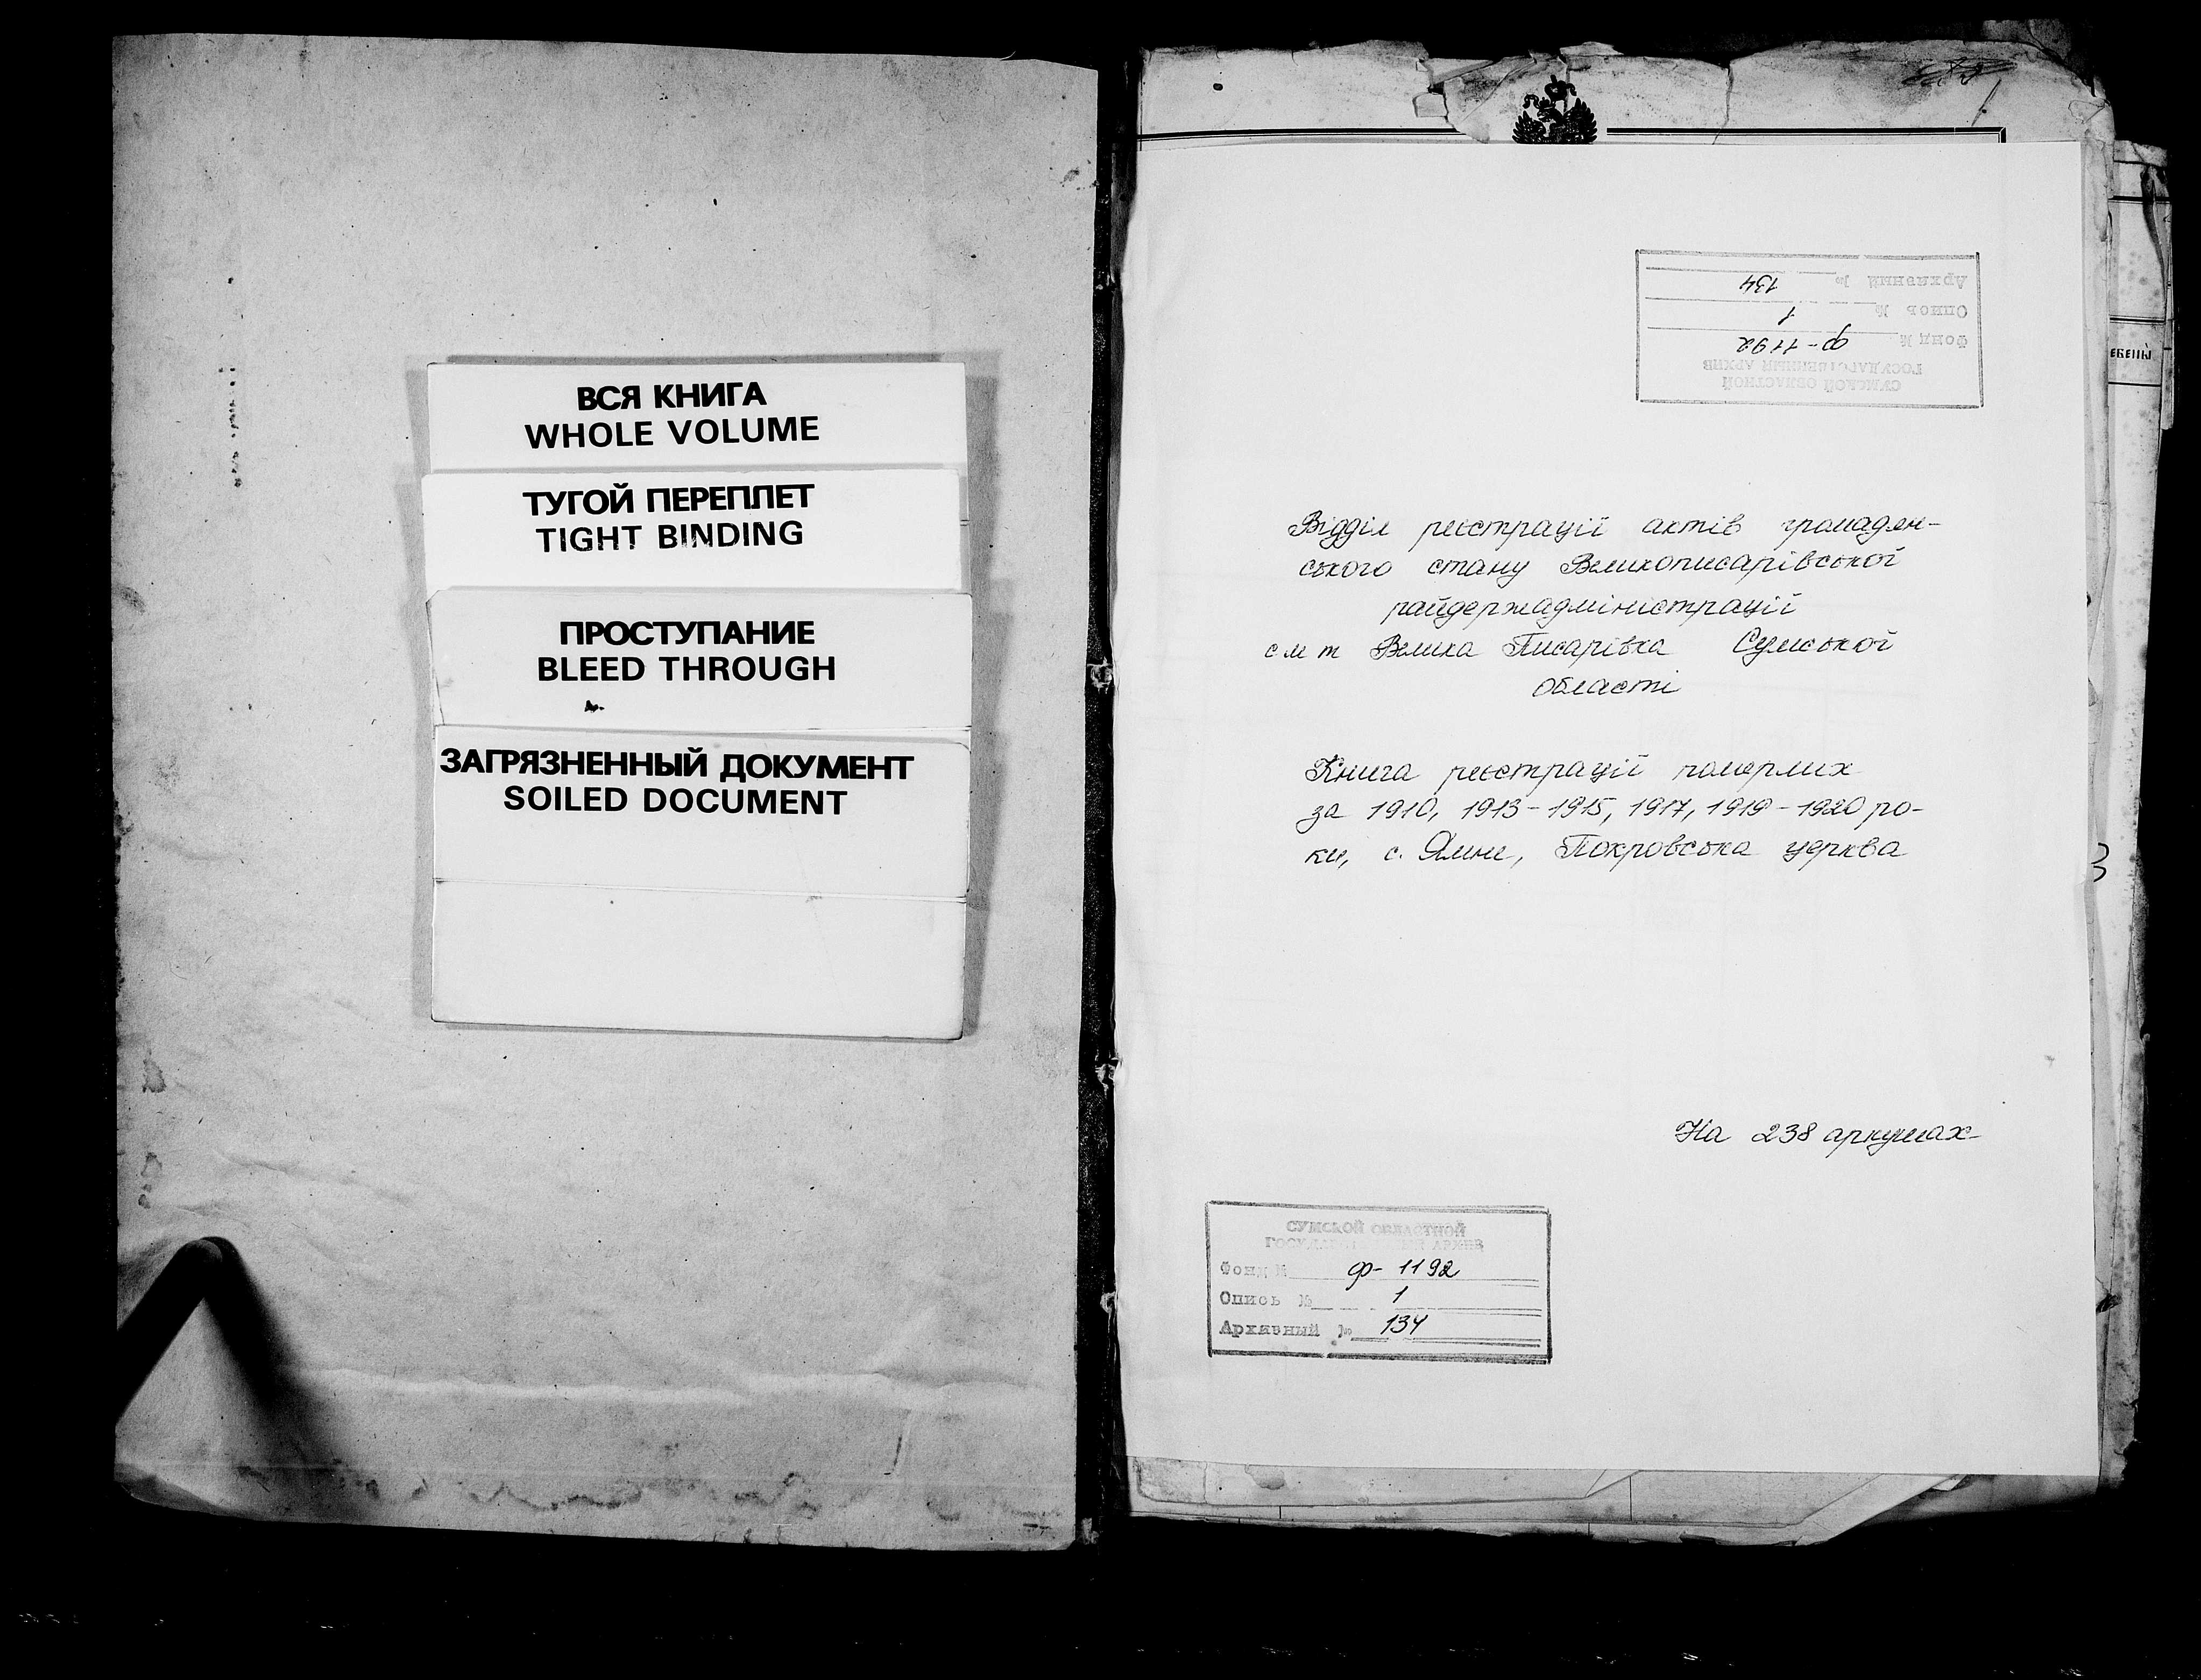 ВСЯ КНИГА
WHOLE VOLUME
ТУГОЙ ПЕРЕПЛЕТ
TIGHT BINDING
ПРОСТУПАНИЕ
BLEED THROUGH
ЗАГРЯЗНЕННЫЙ ДОКУМЕНТ
SOILED DOCUMENT
СУМСКОЙ ОБЛАСТНОЙ
ГОСУДАРСТВЕННЫЙ АРХИВ
Фонд № ф-1192
Опись № 1
Архивный № 134
Відділ реєстрації актів громадян-
ського стану Великописарівської
райдержадміністрації
смт Велика Писарівка Сумської
області
Книга реєстрації померлих
за 1910, 1913-1915, 1917, 1919-1920 ро-
ки, с. Ямне, Покровська церква
На 238 аркушах
СУМСКОЙ ОБЛАСТНОЙ
ГОСУДАРСТВЕННЫЙ АРХИВ
Фонд № ф-1192
Опись № 1
Архивный № 134